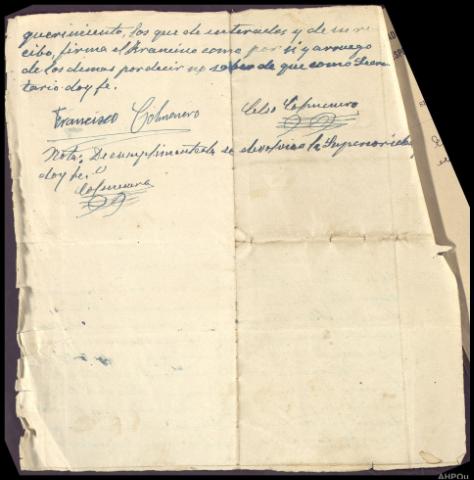 querimiento, los que de enterados y de su re
cibo, firma el Francisco como por si y a ruego
de los demas por decir no saber de que como Secre
tario doy fe.
Francisco Colmenero
Celso Colmenero
Nota: Decumplimentada se devolvio a la Superioridad
doy fe.
Colmenero
AHPOu